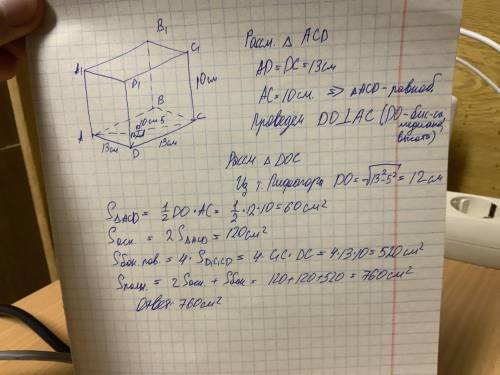 B₁
A₁
C₁
D₁
10см
B
10см 5
A
C
13см
D
13см
Рассм. △ ACD
AD = DC = 13см
AC = 10см. => △ACD - равноб
Проведем DO⊥AC (DO - бис-са,
медиана,
высота)
Рассм △DOC
Из т. Пифагора DO = √13²-5² = 12 см
S△ACD = 1/2 DO · AC = 1/2 · 12 · 10 = 60см²
Sосн. = 2S△ACD = 120см²
Sбок.пов. = 4 · SD₁C₁CD = 4 · C₁C · DC = 4 · 13 · 10 = 520 см²
Sполн. = 2Sосн. + Sбок = 120 + 120 + 520 = 760см²
Ответ 760см²